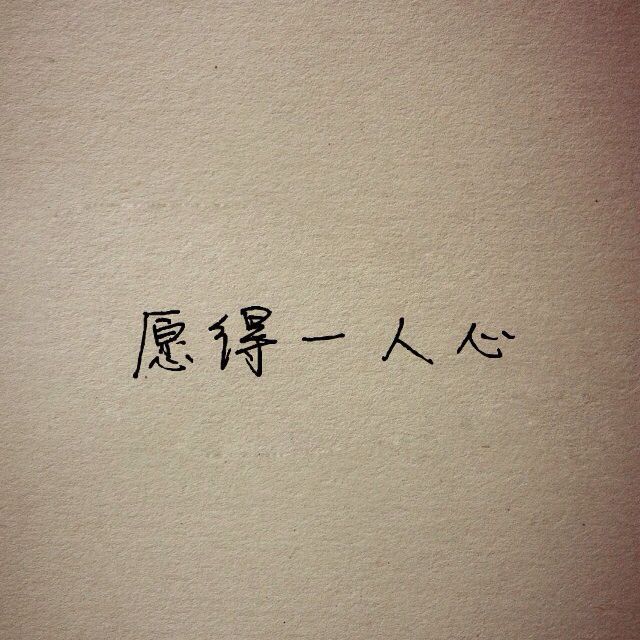 愿得一人心